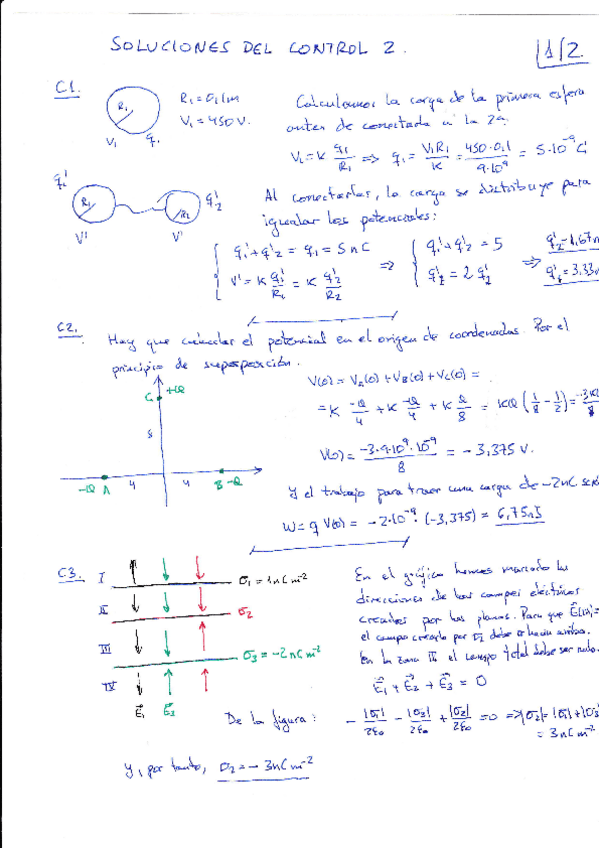 SOLUCIONES DEL CONTROL 2.
1/2
C1.
R₁
R₁ = 0,1m
V₁ = 450 V.
V₁ q₁
Calculamos la carga de la primera esfera
antes de conectarla a la 2ª:
V₁ = K q₁/R₁ ⇒ q₁ = V₁R₁/K = 450·0,1/9·10⁹ = 5·10⁻⁹ C
q₁' R₁ R₂ q'₂
V' V'
Al conectarlas, la carga se distribuye para
igualar los potenciales:
q₁'+q'₂ = q₁ = 5nC ⇒ q₁'+q'₂ = 5 ⇒
V' = K q₁'/R₁ = K q'₂/R₂
C2.
Hay que calcular el potencial en el origen de coordenadas. Por el
principio de superposición.
V(0) = V_A(0) + V_B(0) + V_C(0) =
= K -Q/4 + K -Q/4 + K Q/8 = KQ (1/8 - 1/2) =
C +Q
8
-Q A 4 4 B -Q
V(0) = -3·9·10⁹·10⁻⁹/8 = -3,375 V.
Y el trabajo para traer una carga de -2nC
W = q V(0) = -2·10⁻⁹·(-3,375) = 6,75nJ
C3.
I
σ₁ = 1nCm⁻²
II
σ₂
III
σ₃ = -2nCm⁻²
IV
E⃗₁ E⃗₃
En el gráfico hemos marcado las
direcciones de los campos eléctricos
creados por los planos. Para que
el campo creado por σ₂ debe ir hacia arriba.
En la zona el campo total debe ser nulo.
E⃗₁ + E⃗₂ + E⃗₃ = 0
De la figura: -|σ₁|/2ε₀ - |σ₃|/2ε₀ + |σ₂|/2ε₀ = 0 ⇒ |σ₂| = |σ₁| + |σ₃|
= 3nCm⁻²
Y, por tanto, σ₂ = -3nCm⁻²